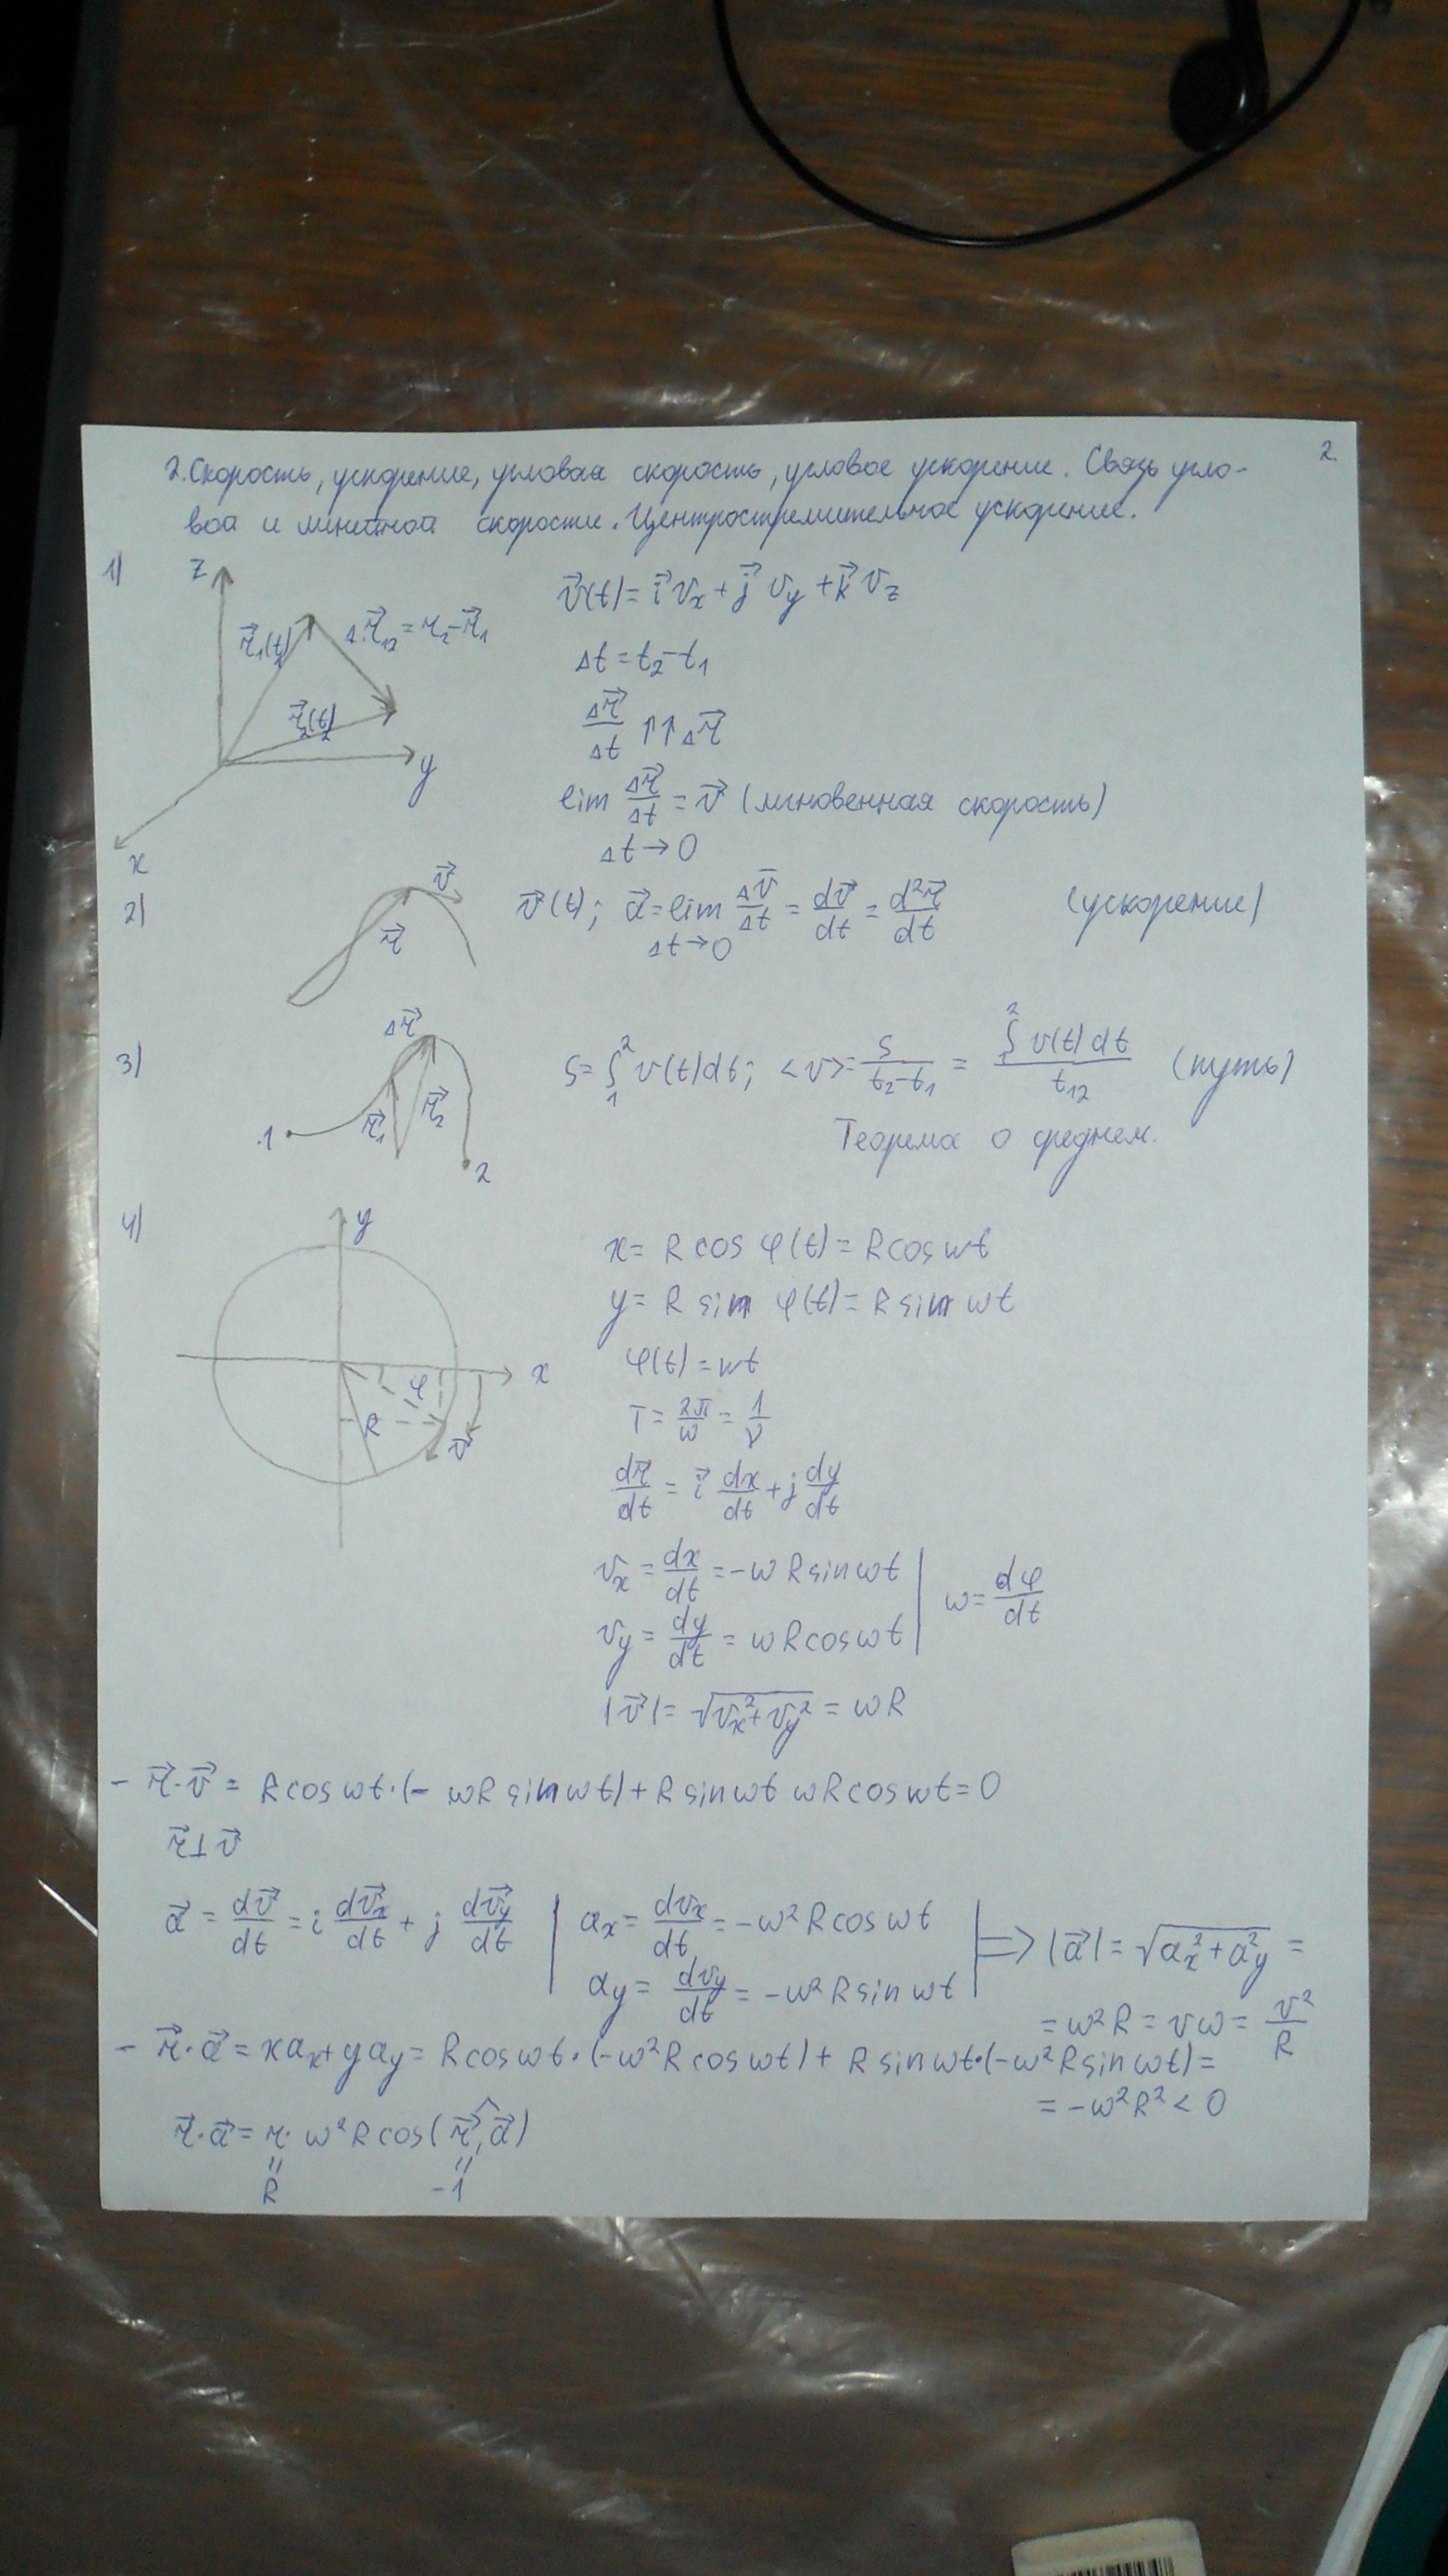 2.
2. Скорость, ускорение, угловая скорость, угловое ускорение. Связь угло-
вой и линейной скорости. Центростремительное ускорение.
1)
z
r⃗₁(t₂)
Δr⃗₁₂ = r₂ - r⃗₁
r⃗₂(t₂)
y
x
v⃗(t) = i⃗ vₓ + j⃗ v_y + k⃗ v_z
Δt = t₂ - t₁
Δr⃗/Δt ↑↑ Δr⃗
lim Δr⃗/Δt = v⃗ (мгновенная скорость)
Δt → 0
2)
v⃗
r⃗
v⃗(t); a⃗ = lim Δv̅/Δt = dv⃗/dt = d²r⃗/dt (ускорение)
Δt → 0
3)
Δr⃗
r⃗₁
r⃗₂
.1
2
S = ∫₁² v(t)dt; <v> = S/(t₂ - t₁) = ∫₁² v(t)dt / t₁₂ (путь)
Теорема о среднем.
4)
y
x
φ
R
v⃗
x = R cos φ(t) = R cos ωt
y = R sin φ(t) = R sin ωt
φ(t) = ωt
T = 2π/ω = 1/ν
dr⃗/dt = i⃗ dx/dt + j dy/dt
vₓ = dx/dt = -ω R sin ωt | ω = dφ/dt
v_y = dy/dt = ω R cos ωt |
|v⃗| = √(vₓ² + v_y²) = ωR
- r⃗·v⃗ = R cos ωt·(-ωR sin ωt) + R sin ωt ωR cos ωt = 0
r⃗ ⊥ v⃗
a⃗ = dv⃗/dt = i dv⃗ₓ/dt + j dv⃗_y/dt | aₓ = dvₓ/dt = -ω² R cos ωt | ⇒ |a⃗| = √(aₓ² + a_y²) =
a_y = dv_y/dt = -ω² R sin ωt
= ω²R = vω = v²/R
- r⃗·a⃗ = xaₓ + ya_y = R cos ωt·(-ω²R cos ωt) + R sin ωt·(-ω²R sin ωt) =
= -ω²R² < 0
r⃗·a⃗ = r· ω²R cos(r⃗,^a⃗)
" "
R -1